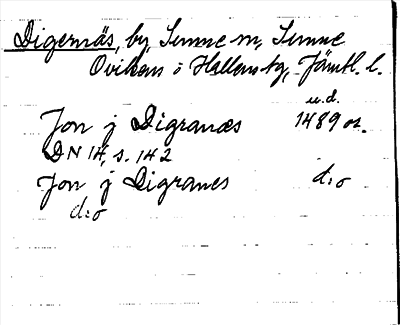 Digernäs, by, Sunne sn, Sunne
Ovikens o Hallens tg, Jämtl. l.
u.d.
Jon j Digranæs 1489 or.
DN 14, s. 142
Jon j Digranes d:o
d:o